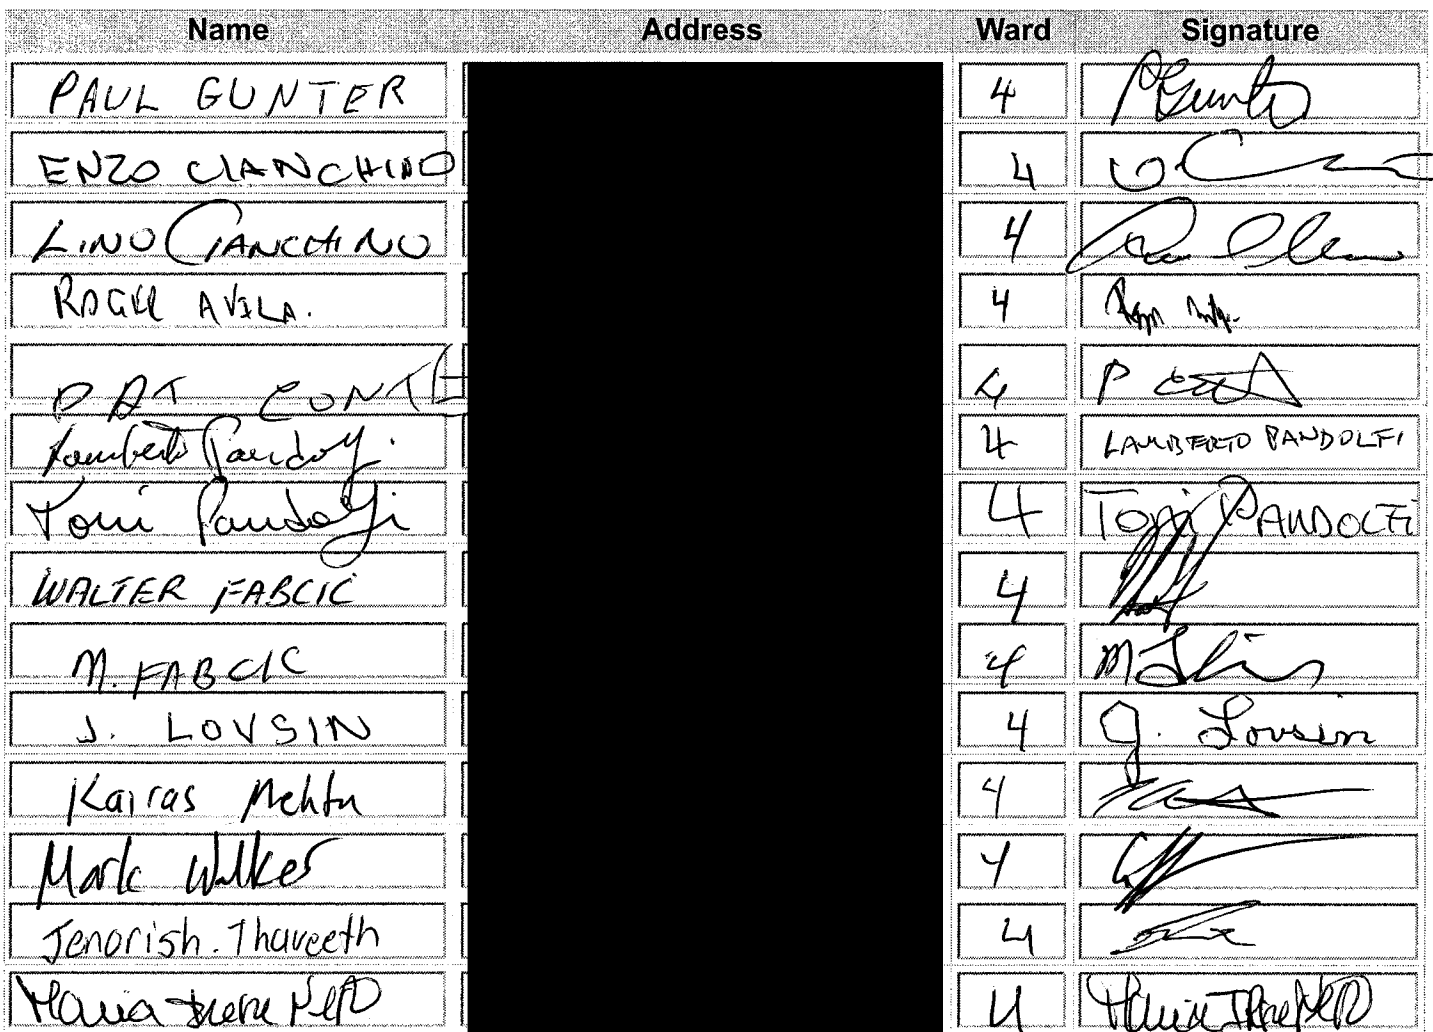 Name Address Ward Signature
PAUL GUNTER 4 PGunter
ENZO CIANCHINO 4
LINO CIANCHINO 4
ROGER AVILA. 4
PAT CONTE 4 P
Lamberto Pandolfi. 4 LAMBERTO PANDOLFI
Toni Pandolfi 4 Toni PANDOLFI
WALTER FABCIC 4
M. FABCIC 4 M
J. LOVSIN 4 J. Lovsin
Kairas Mehta 4
Mark Walker 4
Jenorish. Thaveeth 4
Maria Irene Melo 4 Maria Irene Melo